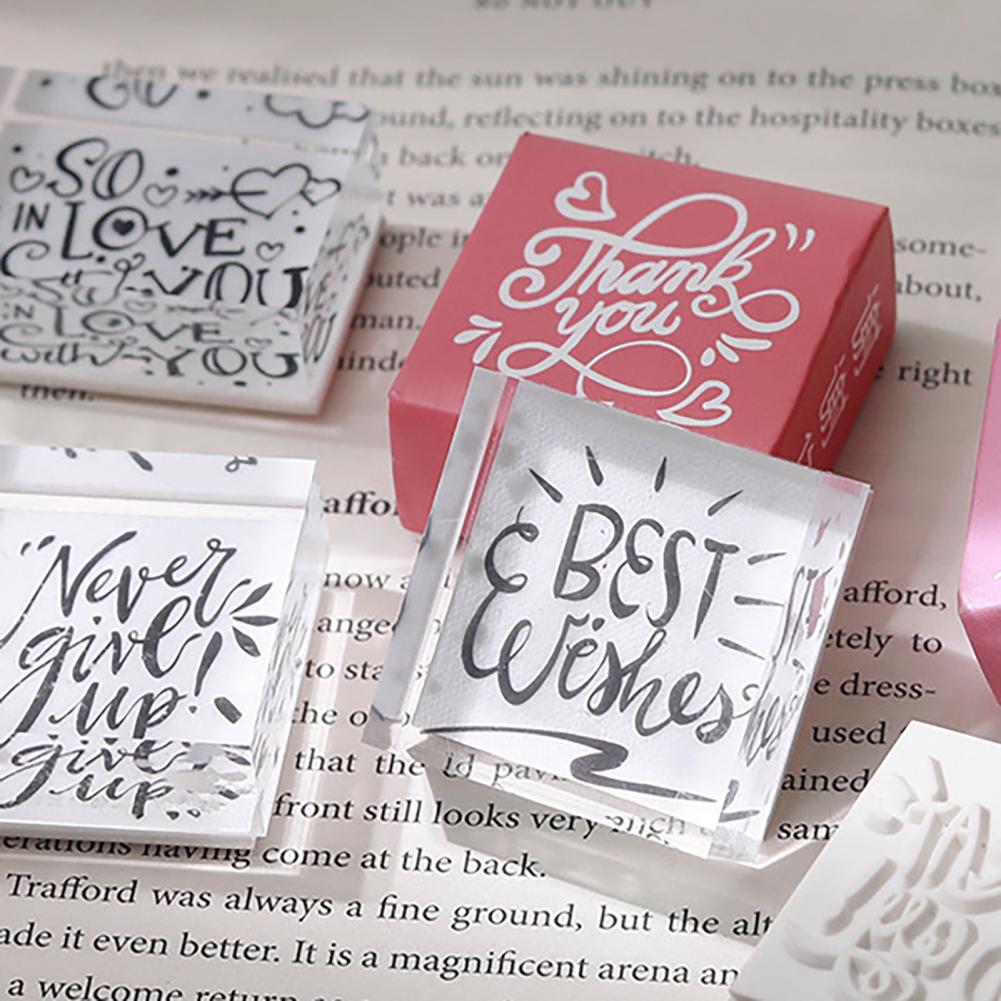 then we realised that the sun was shining on to the press box
ound, reflecting on to the hospitality boxes
back on
itch.
t was a
SO
IN LOVE
with YOU
IN LOVE
with YOU
Thank
you
ople in
some-
outed
about,
man.
right
then.
BEST
Wishes
Never
give
up!
give
up!
now
afford,
ange
etely to
to sta
e dress-
the o
used
that the
ained
front still looks very
sam
erations having come at the back.
Trafford was always a fine ground, but the alt
ade it even better. It is a magnificent arena an
a welcome return